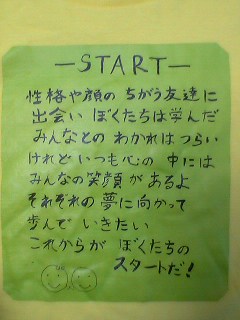 ーSTARTー
性格や顔の ちがう友達に
出会い ぼくたちは学んだ
みんなとの わかれはつらい
けれど いつも心の 中には
みんなの笑顔が あるよ
それぞれの 夢に向かって
歩んで いきたい
これからが ぼくたちの
スタートだ!